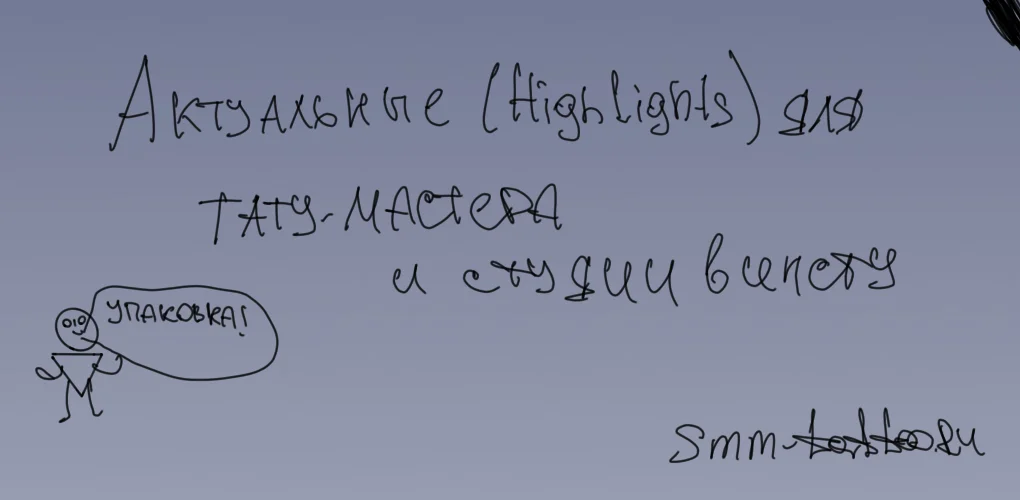 Актуальные (Highlights) для
тату-мастера
и студии в инсту
УПАКОВКА!
smm-tattoo.ru